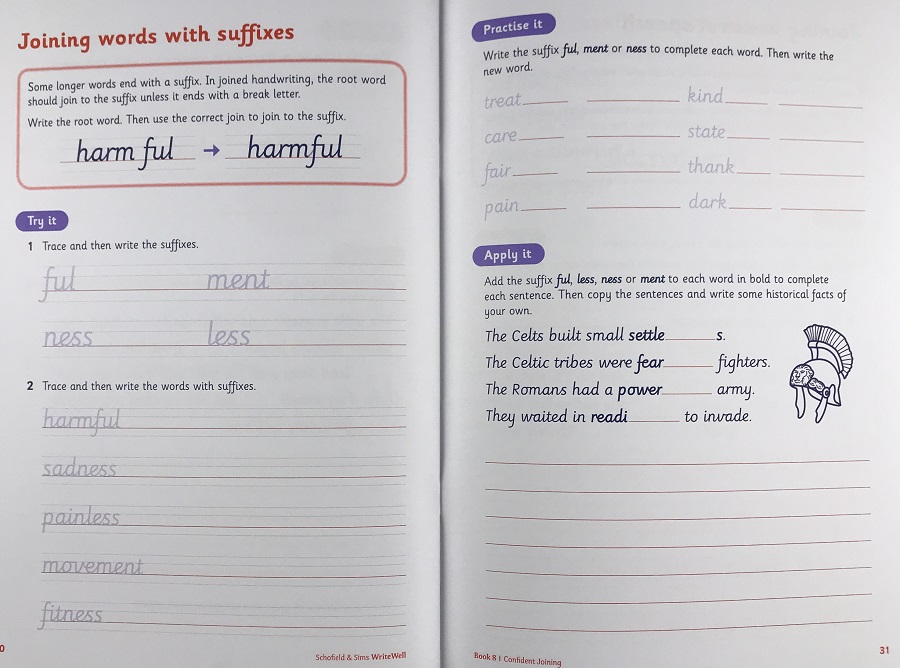 Joining words with suffixes
Some longer words end with a suffix. In joined handwriting, the root word
should join to the suffix unless it ends with a break letter.
Write the root word. Then use the correct join to join to the suffix.
harm ful → harmful
Try it
1 Trace and then write the suffixes.
ful ment
ness less
2 Trace and then write the words with suffixes.
harmful
sadness
painless
movement
fitness
0
Schofield & Sims WriteWell
Practise it
Write the suffix ful, ment or ness to complete each word. Then write the
new word.
treat______ ______ kind______ ______
care______ ______ state______ ______
fair______ ______ thank______ ______
pain______ ______ dark______ ______
Apply it
Add the suffix ful, less, ness or ment to each word in bold to complete
each sentence. Then copy the sentences and write some historical facts of
your own.
The Celts built small settle______ s.
The Celtic tribes were fear______ fighters.
The Romans had a power______ army.
They waited in readi______ to invade.
Book 8 | Confident Joining
31